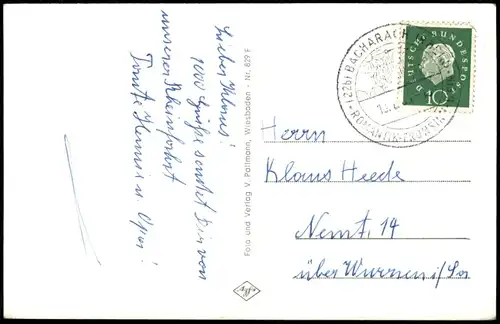 Lieber Klaus!
1000 Grüße sendet Dir von
unserer Rheinfahrt
Tante Hanni u. Opa!
Foto und Verlag V. Pattmann, Wiesbaden - Nr. 829 F
(22b) BACHARACH
ROMANTIK
DEUTSCHE BUNDESPOST
10
Herrn
Klaus Heede
Nemt, 14
über Wurzen i/Sa